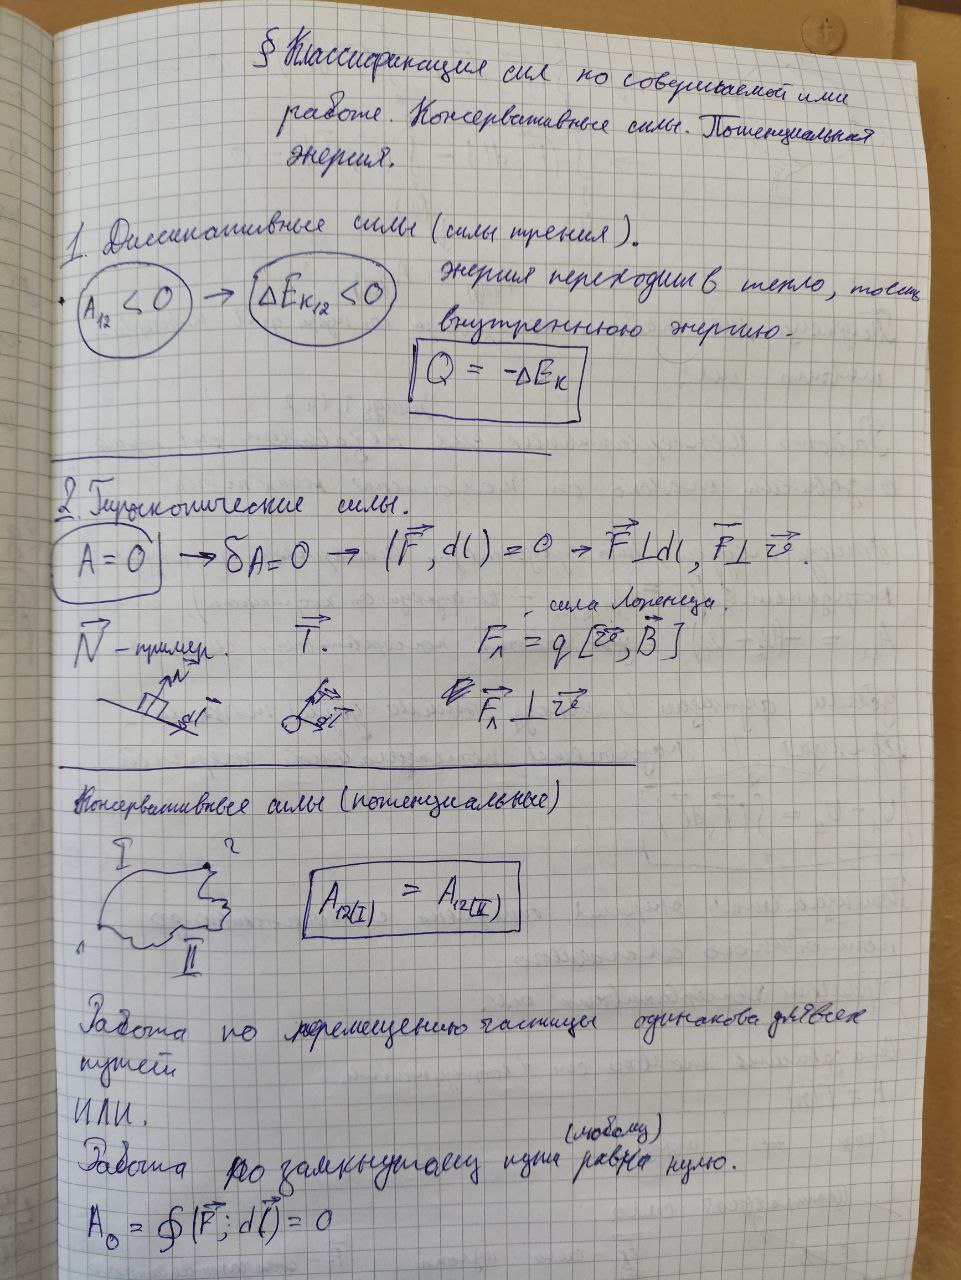 § Классификация сил по совершаемой ими
работе. Консервативные силы. Потенциальная
энергия.
1. Диссипативные силы (силы трения).
A₁₂ < 0 → ΔEк₁₂ < 0
энергия переходит в тепло, то есть
внутреннюю энергию.
Q = -ΔEк
2. Гироскопические силы.
A = 0 → δA = 0 → (F⃗, dl) = 0 → F⃗ ⊥ dl, F⃗ ⊥ v⃗.
сила Лоренца.
N⃗ - пример. T⃗. Fл = q [v⃗, B⃗]
N⃗ dl⃗ dl⃗ F⃗л ⊥ v⃗
Консервативные силы (потенциальные)
I 2
A₁₂(I) = A₁₂(II)
1 II
Работа по перемещению частицы одинакова для всех
путей
ИЛИ.
(любому)
Работа по замкнутому пути равна нулю.
A₀ = ∮ (F⃗; dl⃗) = 0